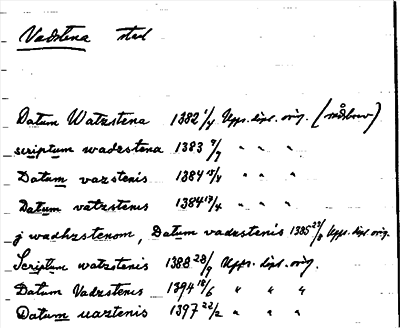 Vadstena stad
Datum Watzstena 1382 1/4 Upps. dipl. orig. (
scriptum wadzstena 1383 7/7 " " "
Datum vazstenis 1384 13/4 " " "
Datum vatzstenis 1384 13/4 " " "
j wadhzstenom, Datum vadzstenis 1385 23/8 Upps. dipl. orig.
Scriptum watzstenis 1388 28/9 Upps. dipl. orig.
Datum Vadzstenis 1394 18/6 " " "
Datum uaztenis 1397 22/2 " " "